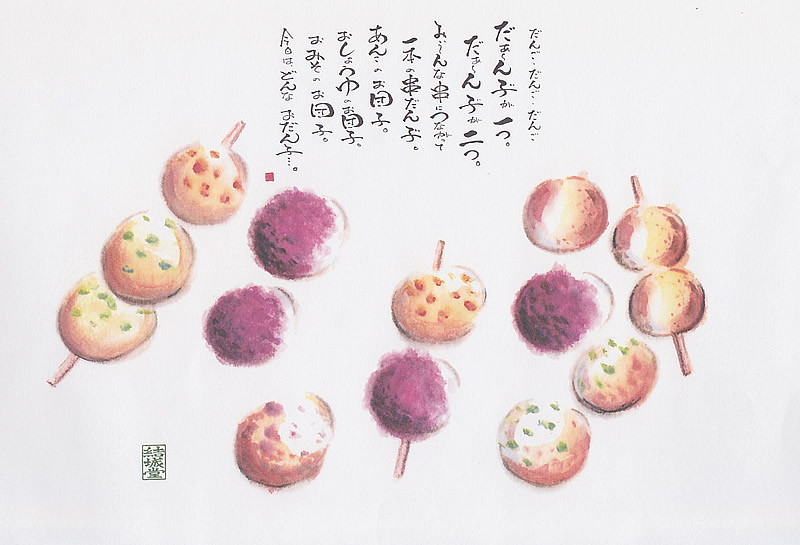 だんご‥だんご‥だんご
だぁ～んごが一つ。
だぁ～んごが二つ。
みぃ～んな串につながって
一本の串だんご。
あんこのお団子。
おしょうゆのお団子。
おみそのお団子。
今日は、どんなおだんご…。
結城堂